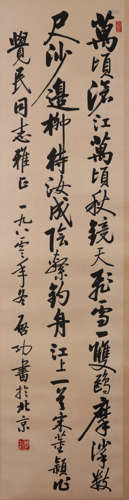 萬頃滄江萬頃秋鏡天飛雪一雙鷗摩挲數
尺沙邊柳待汝成陰繫釣舟江上一首宋董穎作
覺民同志雅正一九八零年冬啟功書於北京